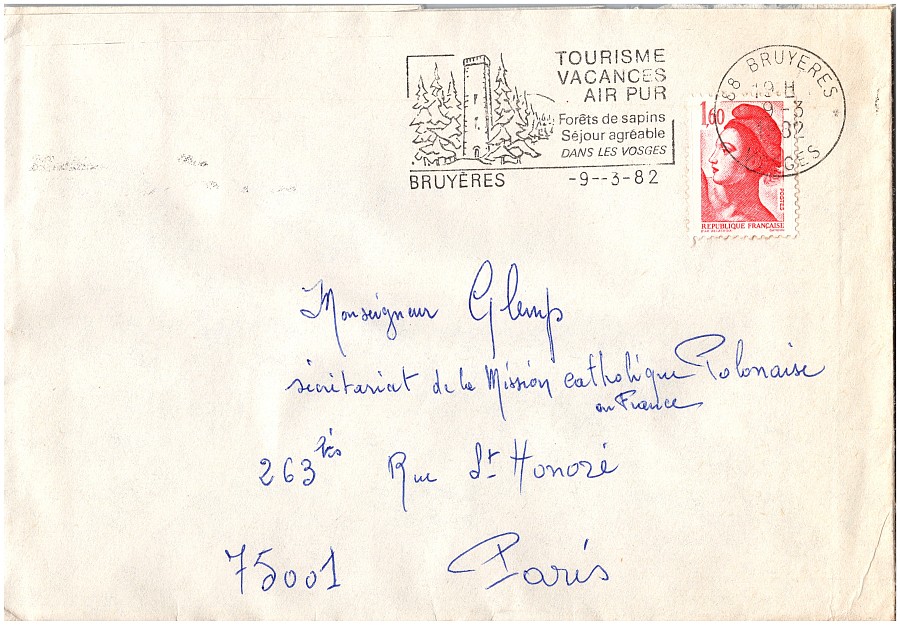 TOURISME
VACANCES
AIR PUR
Forêts de sapins
Séjour agréable
DANS LES VOSGES
BRUYÈRES -9--3-82
88 BRUYERES *
19 H
9-3
1982
VOSGES
1,60
POSTES
REPUBLIQUE FRANÇAISE
Monseigneur Glemp
sécrétariat de la Mission catholique Polonaise
en France
263 bis Rue St Honoré
75001 Paris